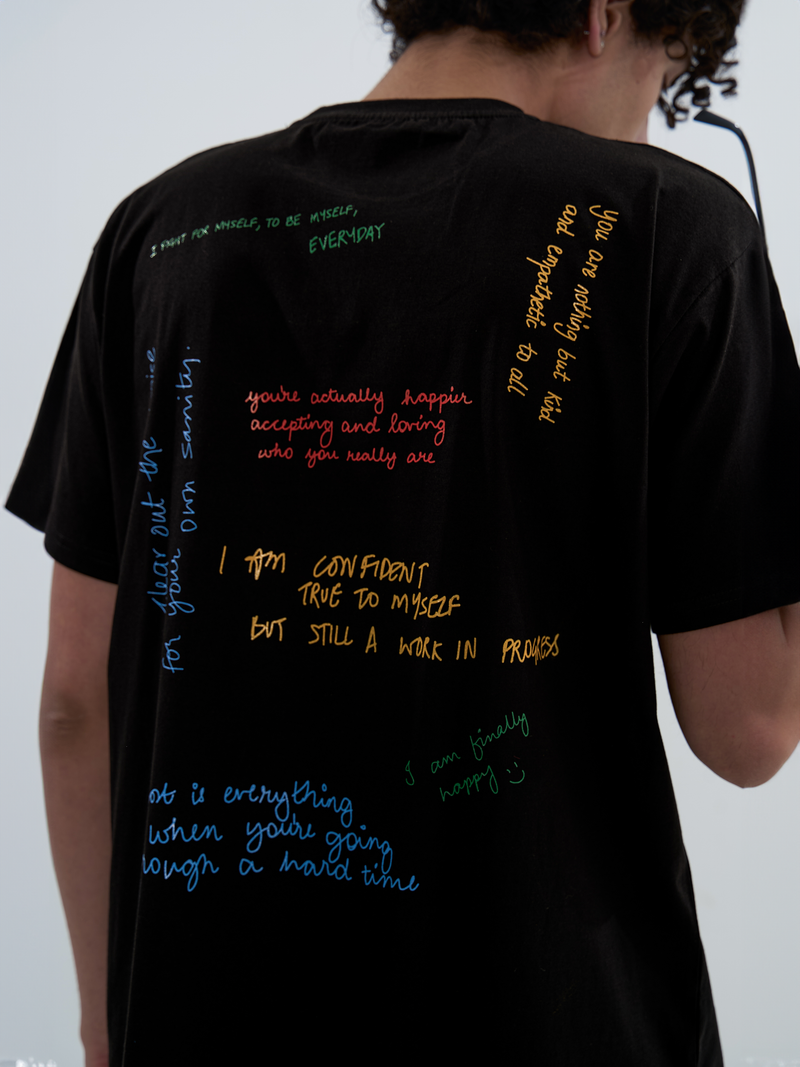 I FIGHT FOR MYSELF, TO BE MYSELF,
EVERYDAY
you are nothing but kind
and empathetic to all
clear out the
for your own sanity.
you're actually happier
accepting and loving
who you really are
I AM CONFIDENT
TRUE TO MYSELF
BUT STILL A WORK IN PROGRESS
I am finally
happy :)
is everything
when you're going
a hard time